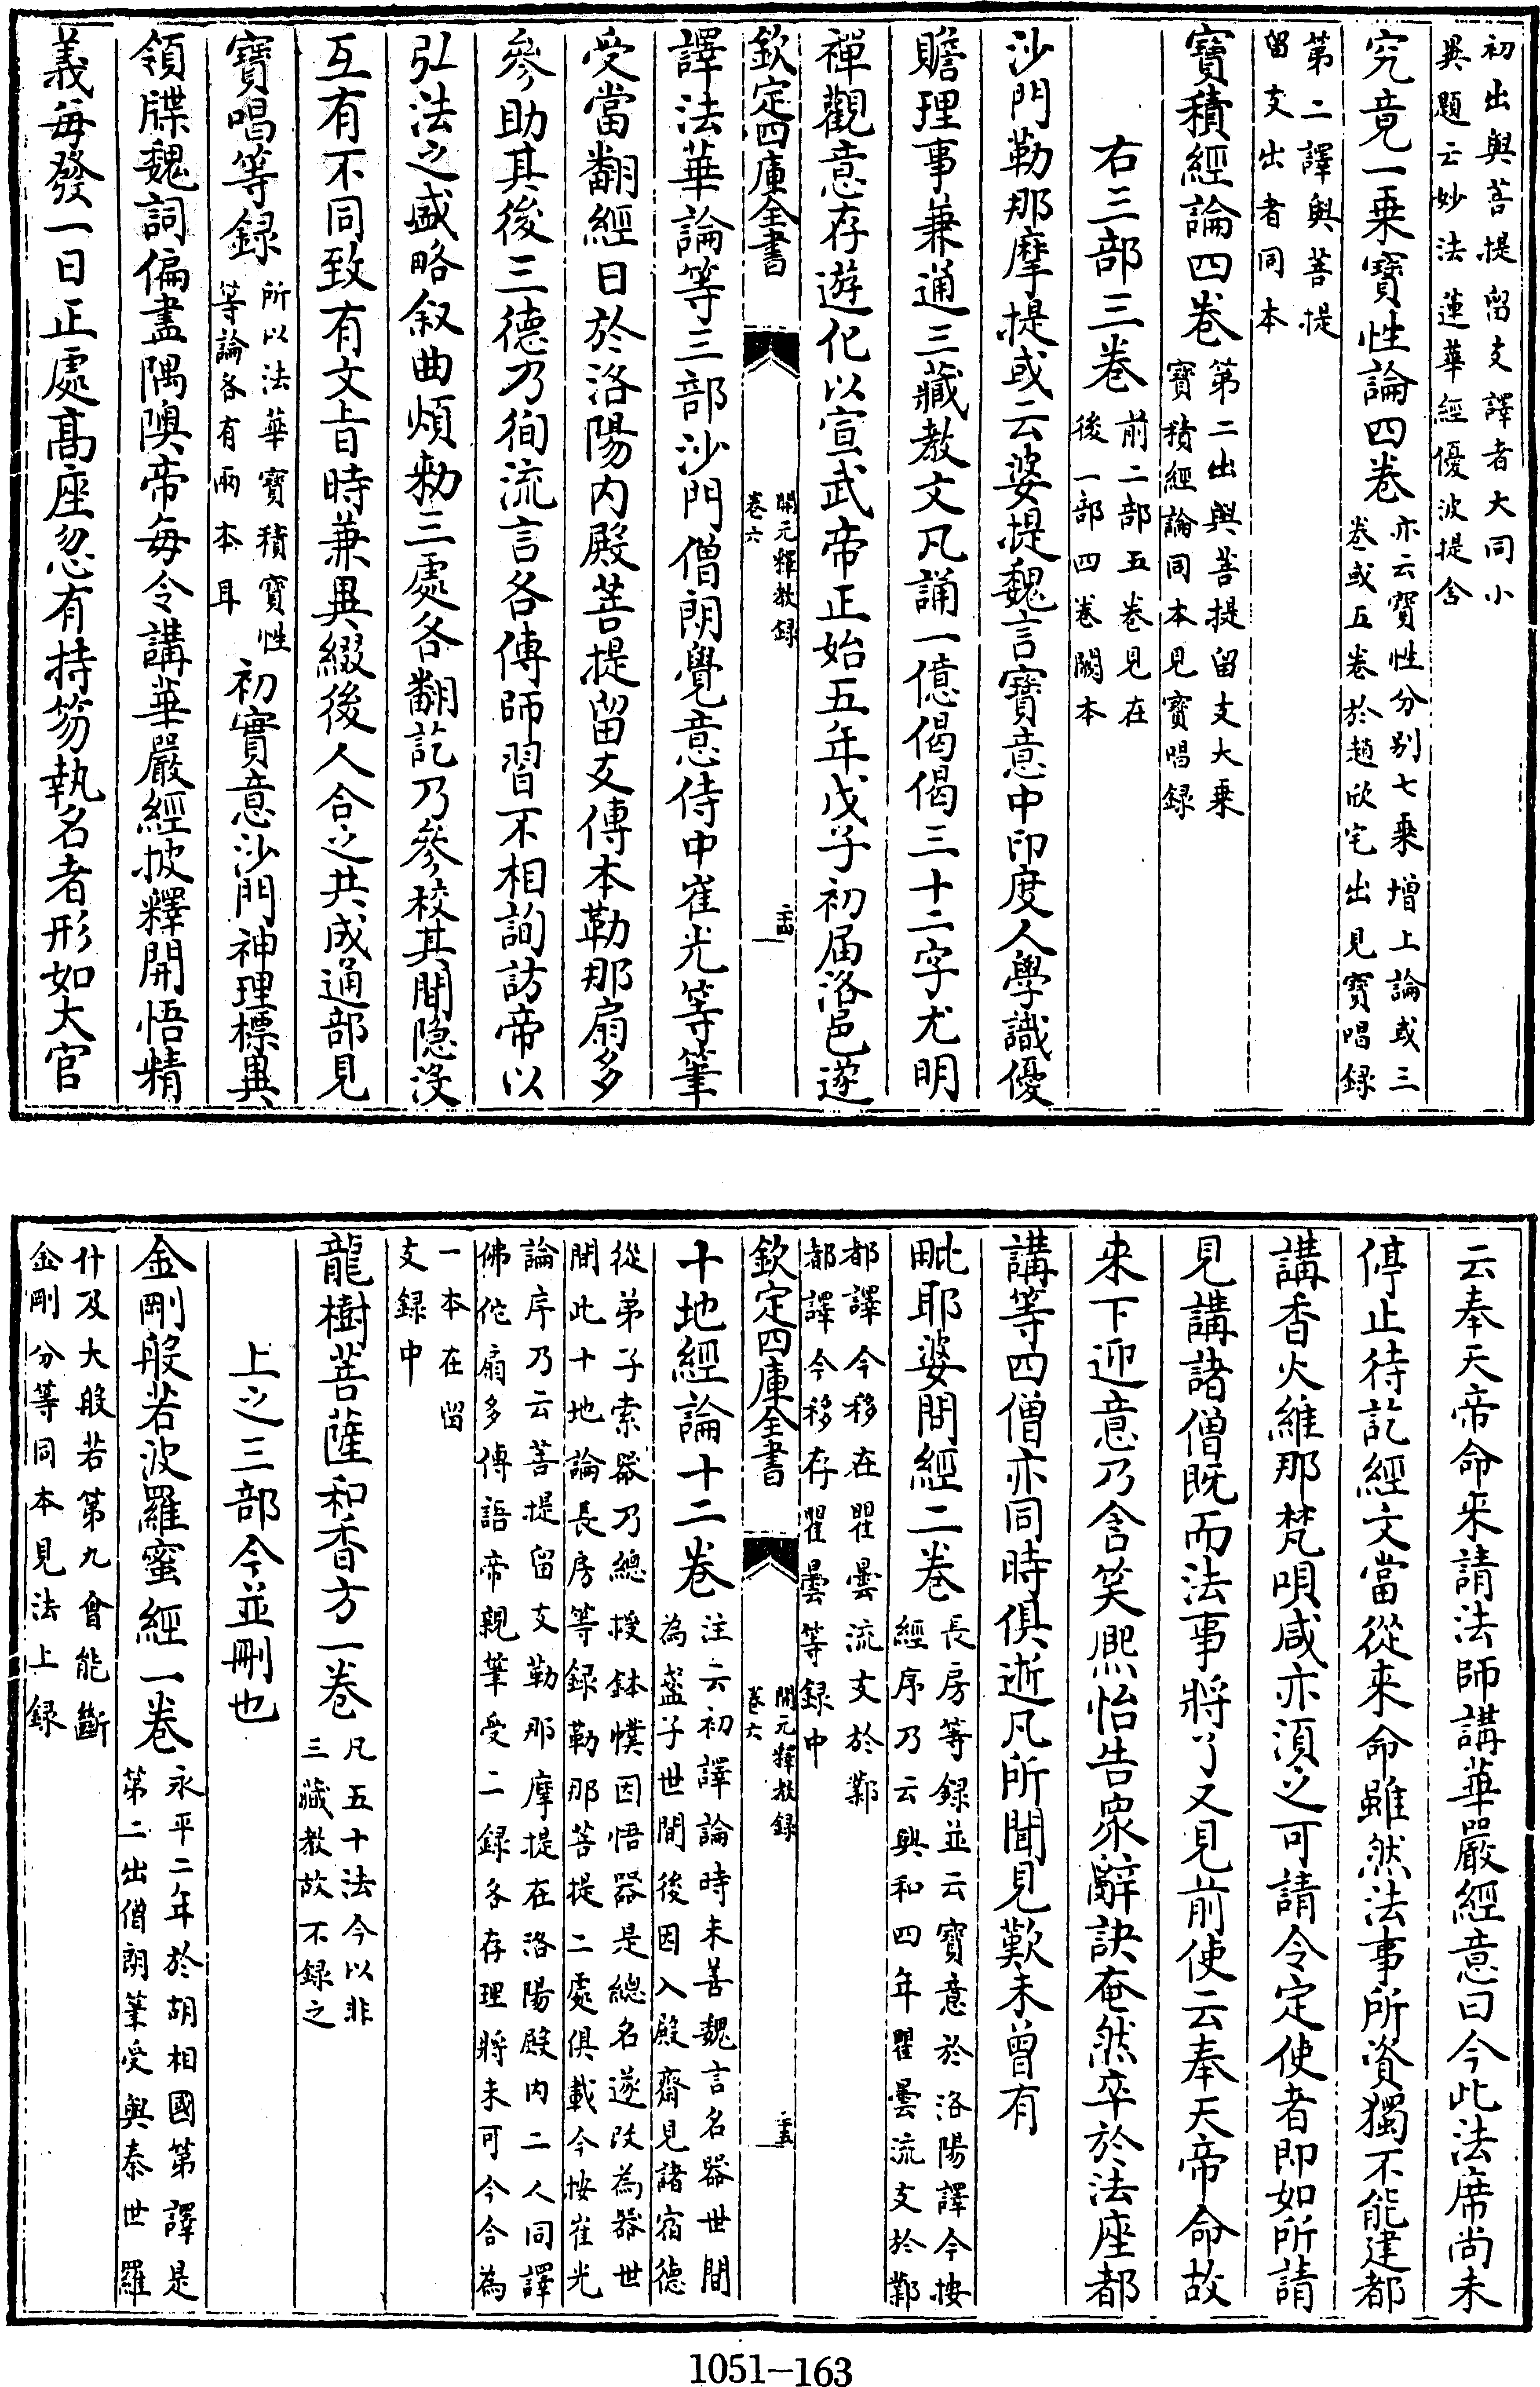 初出與菩提留支譯者大同小
異題云妙法蓮華經優波提舍
究竟一乗寳性論四卷亦云寳性分别七乗增上論或三
卷或五卷於趙欣宅出見寳唱録
第二譯與菩提
留支出者同本
寳積經論四卷第二出與菩提留支大乗
寳積經論同本見寳唱録
右三部三卷前二部五卷見在
後一部四卷闕本
沙門勒那摩提或云婆提魏言寳意中印度人學識優
贍理事兼通三藏教文凡誦一億偈偈三十二字尤明
禪觀意存遊化以宣武帝正始五年戊子初届洛邑遂
欽定四庫全書
開元釋教録
卷六
二十四
譯法華論等三部沙門僧朗覺意侍中崔光等筆
受當翻經日於洛陽内殿菩提留支傳本勒那扇多
參助其後三德乃徇流言各傳師習不相詢訪帝以
弘法之盛略叙曲煩勅三處各翻訖乃參校其間隐没
互有不同致有文㫖時兼異綴後人合之共成通部見
寳唱等録所以法華寳積寳性
等論各有兩本耳
初寳意沙門神理標異
領牒魏詞偏盡隅隩帝每令講華嚴經披釋開悟精
義每發一日正處髙座忽有持笏執名者形如大官
云奉天帝命来請法師講華嚴經意曰今此法席尚未
停止待訖經文當從來命雖然法事所資獨不能建都
講香火維那梵唄咸亦須之可請令定使者即如所請
見講諸僧既而法事將了又見前使云奉天帝命故
来下迎意乃含笑熈怡告衆辭訣奄然卒於法座都
講等四僧亦同時俱逝凡所聞見歎未曾有
毗耶婆問經二卷長房等録並云寳意於洛陽譯今按
經序乃云興和四年瞿曇流支於鄴
都譯今移在瞿曇流支於鄴
都譯今移存瞿曇等録中
欽定四庫全書
開元釋教録
卷六
二十五
十地經論十二卷注云初譯論時未善魏言名器世間
為盞子世間後因入殿齋見諸宿德
從弟子索器乃總授鉢幞因悟器是總名遂改為器世
間此十地論長房等録勒那菩提二處俱載今按崔光
論序乃云菩提留支勒那摩提在洛陽殿内二人同譯
佛陀扇多傳語帝親筆受二録各存理將未可今合為
一本在留
支録中
龍樹菩薩和香方一卷凡五十法今以非
三藏教故不録之
上之三部今並刪也
金剛般若波羅蜜經一卷永平二年於胡相國第譯是
第二出僧朗筆受與秦世羅
什及大般若第九會能斷
金剛分等同本見法上録
1051-163